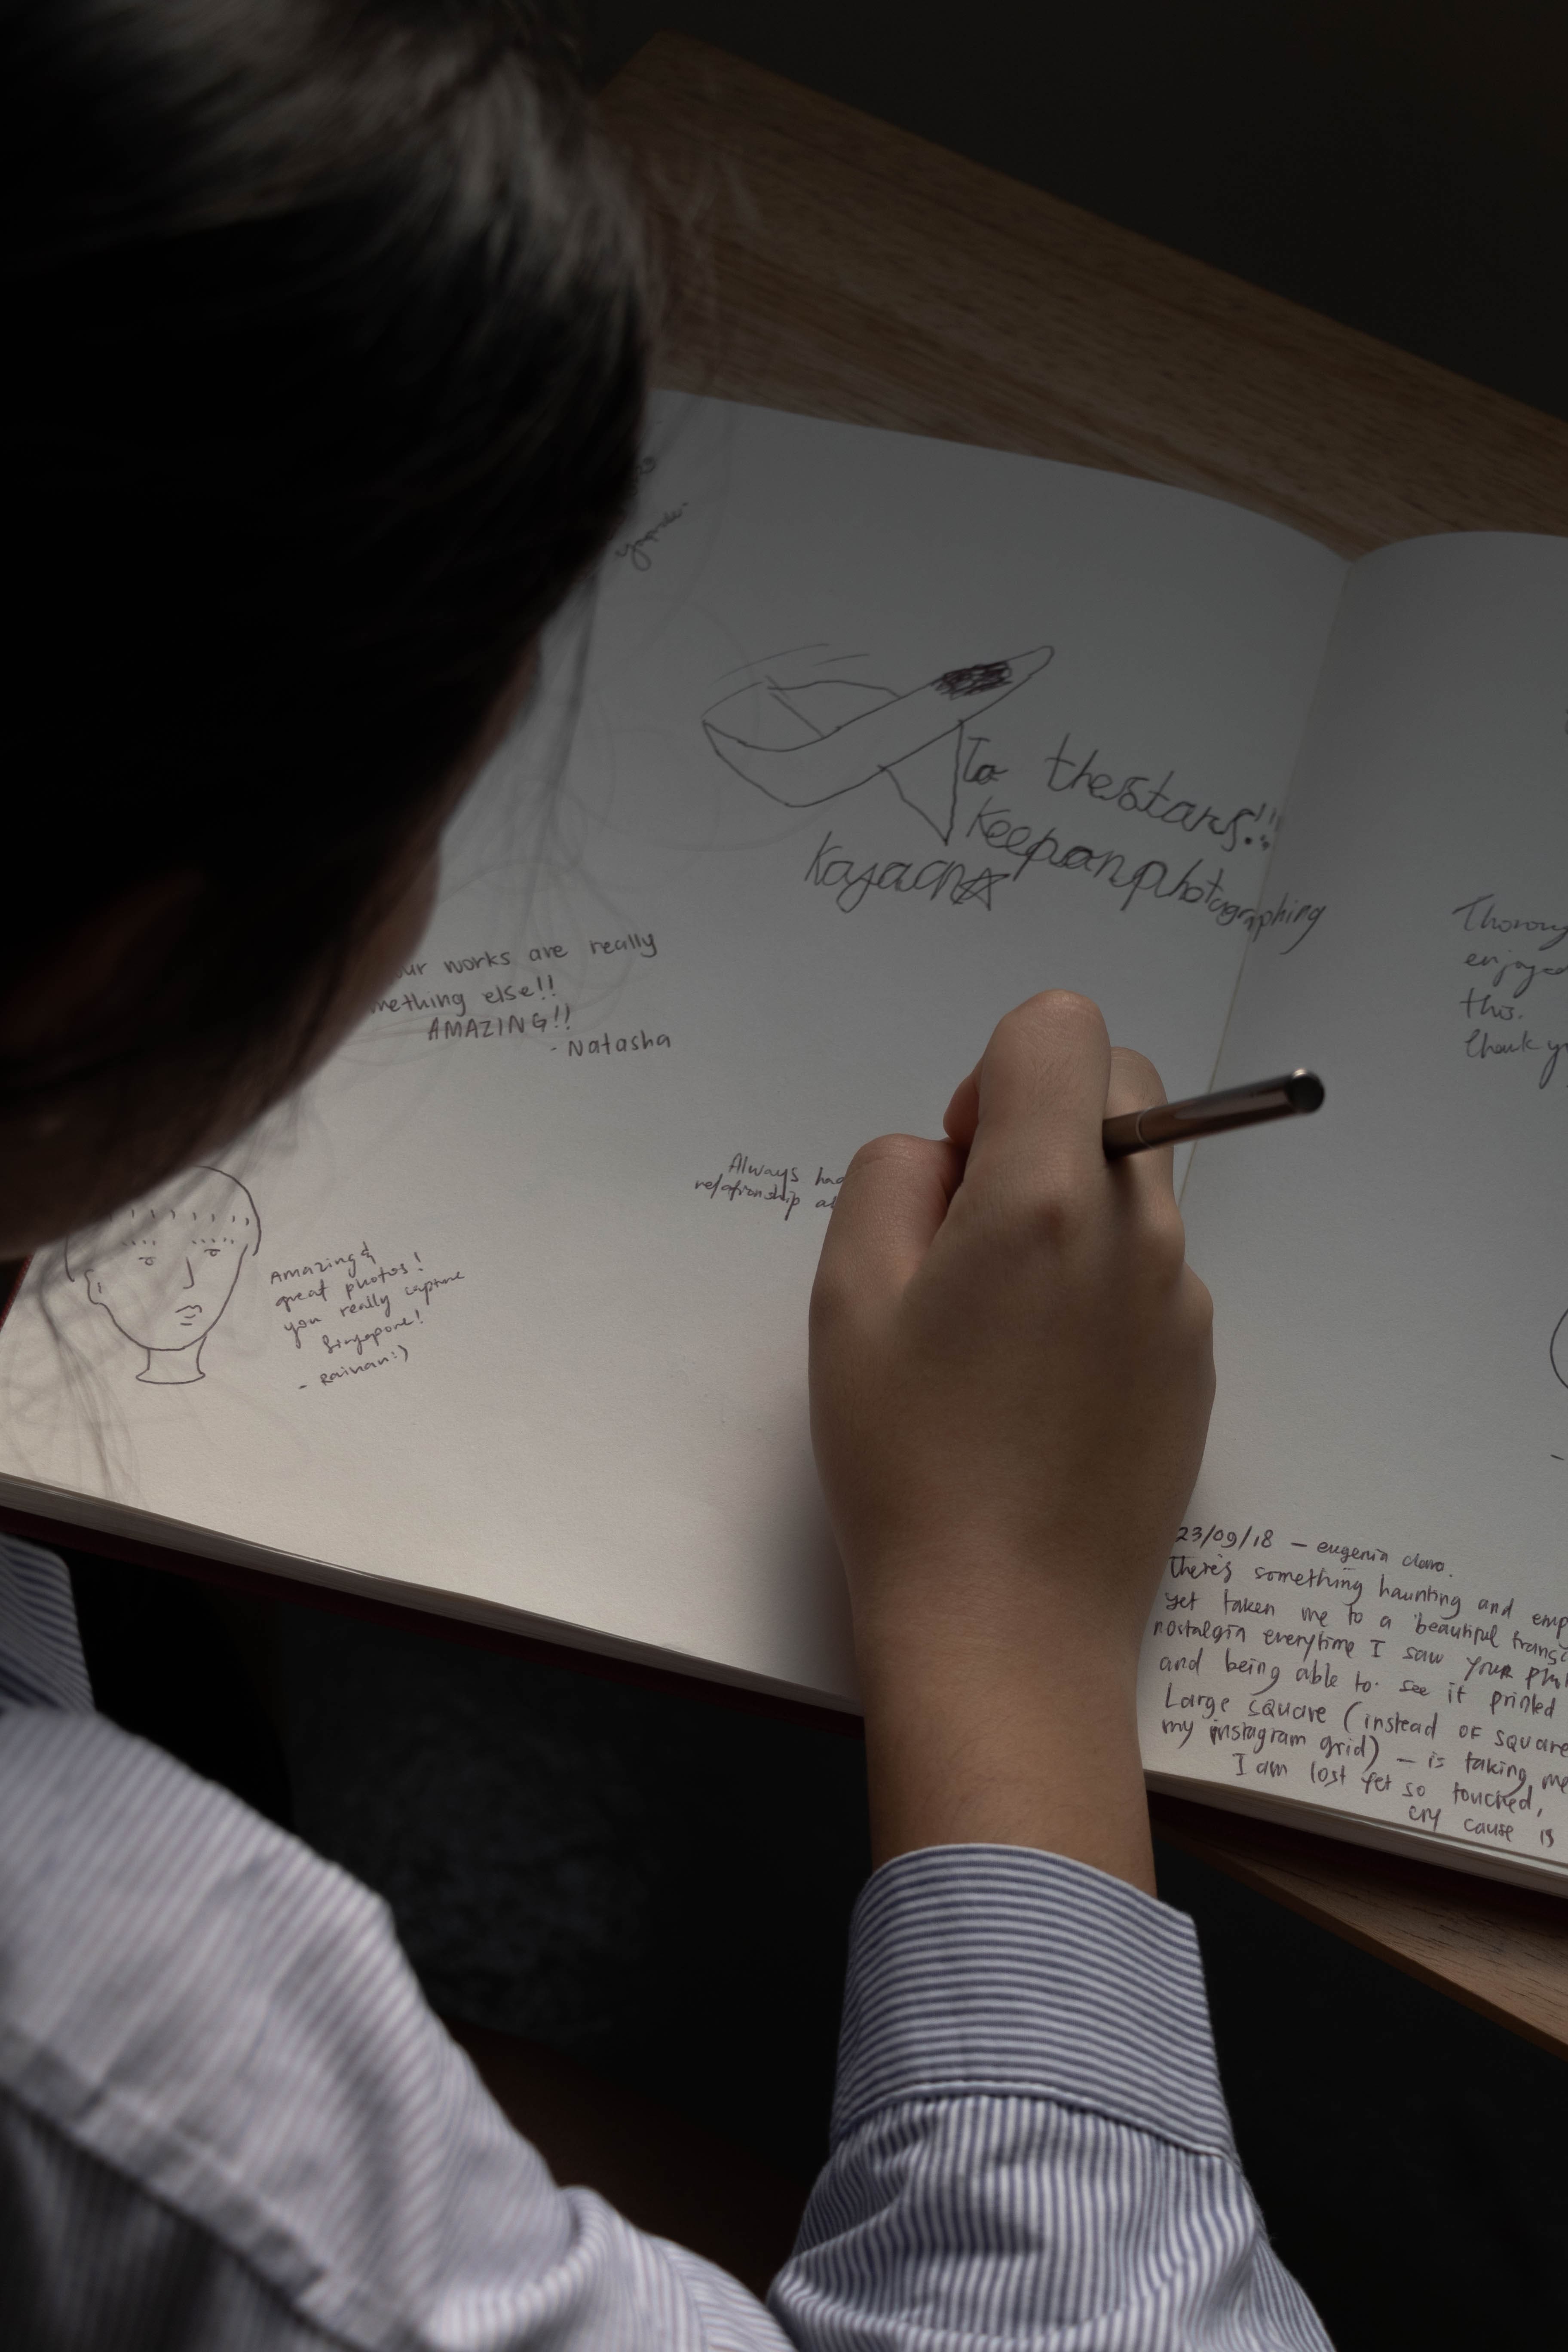 To the stars!!
Keep on photographing
our works are really
mething else!!
AMAZING!!
- Natasha
Always had
relationship
Amazing &
great photos!
you really capture
Singapore!
- Rainan :)
Thoroug
enjoyed
this.
Thank y
23/09/18 — eugenia
There's something haunting and emp
yet taken me to a beautiful transi
nostalgia everytime I saw your
and being able to see it printed
Large square (instead of square
my instagram grid) — is taking me
I am lost yet so touched,
cry cause is